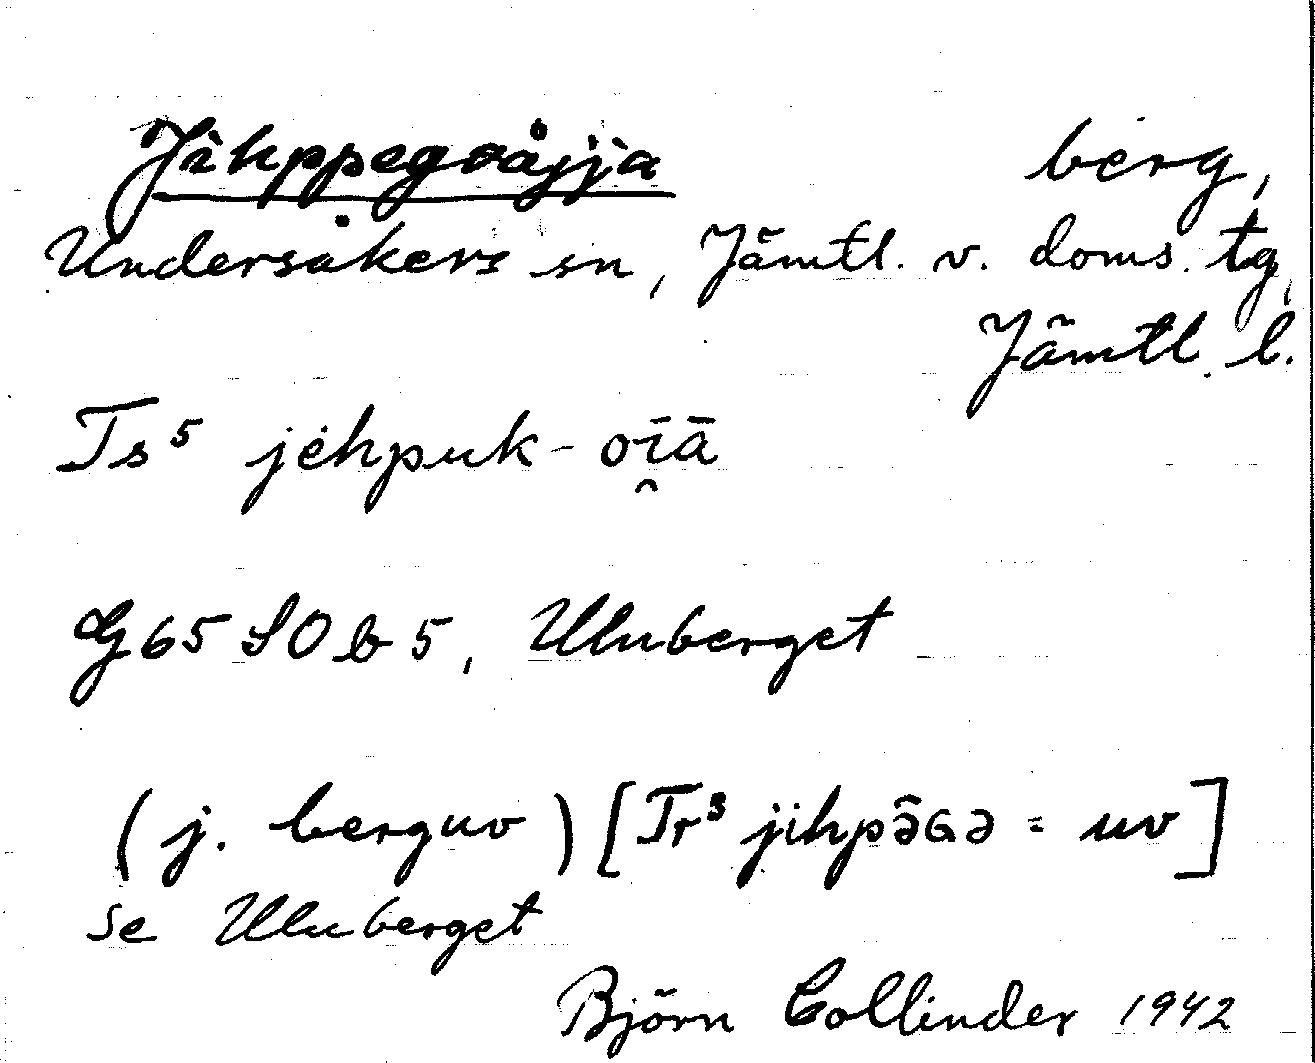 Jihppegoåjja berg,
Undersåkers sn, Jämtl. v. doms. tg,
Jämtl. l.
Ts⁵ jėhpuk-oī̯ā
G65 SO b 5, Uluberget
(j. berguv) [Tr³ jihpə̑ɢə = uv]
se Uluberget
Björn Collinder 1942